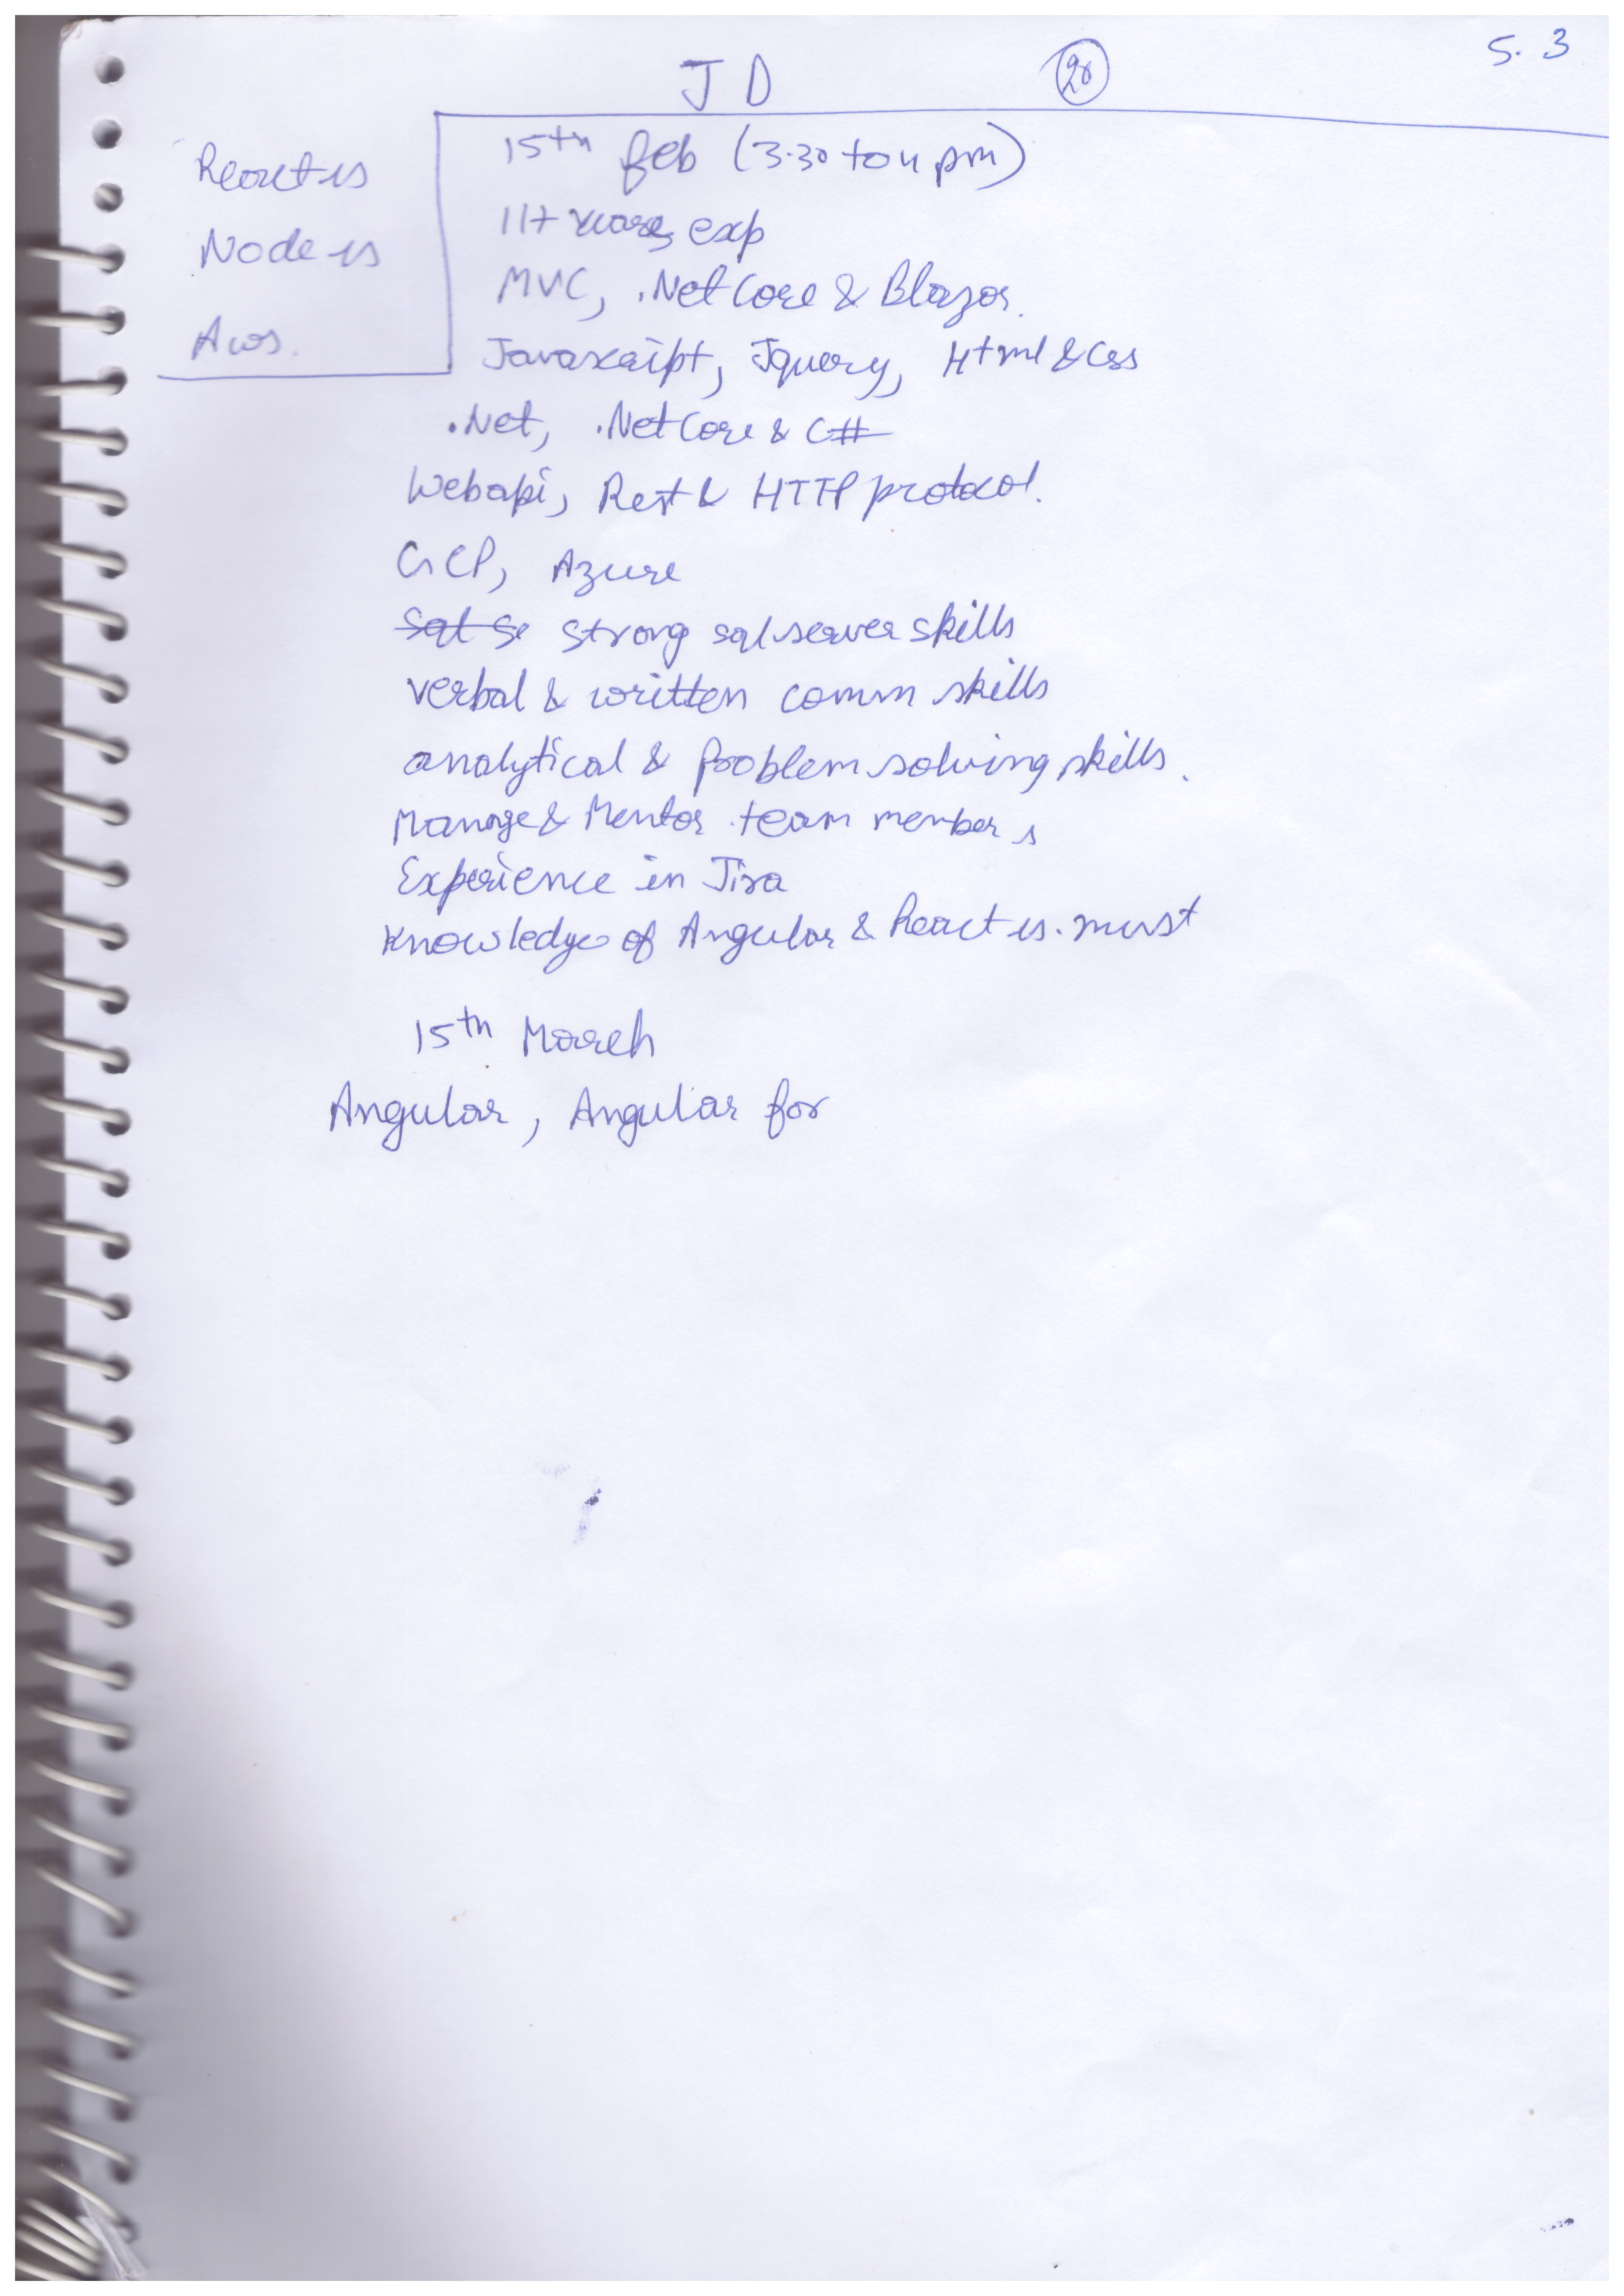 JD
5.3
React js
Node js
Aws.
15th feb (3.30 to 4 pm)
11+ years exp
MVC, .Net Core & Blazor.
Javascript, Jquery, Html & Css
.Net, .Net Core & C#
Webapi, Rest & HTTP protocol.
GCP, Azure
Sql Se strong sql server skills
verbal & written comm skills
analytical & problem solving skills.
Manage & Mentor team members
Experience in Jira
Knowledge of Angular & React is must
15th March
Angular, Angular for